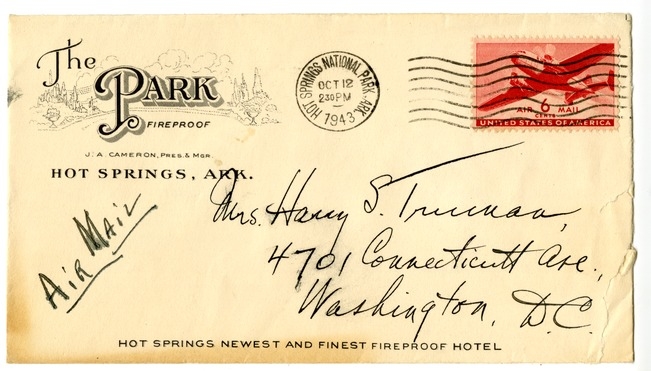 The
PARK
FIREPROOF
J. A. CAMERON, PRES. & MGR.
HOT SPRINGS, ARK.
HOT SPRINGS NATIONAL PARK, ARK.
OCT 12
230 PM
1943
AIR 6 MAIL
CENTS
UNITED STATES OF AMERICA
Air Mail
Mrs. Harry S. Truman,
4701 Connecticutt Ave.,
Washington, D.C.
HOT SPRINGS NEWEST AND FINEST FIREPROOF HOTEL